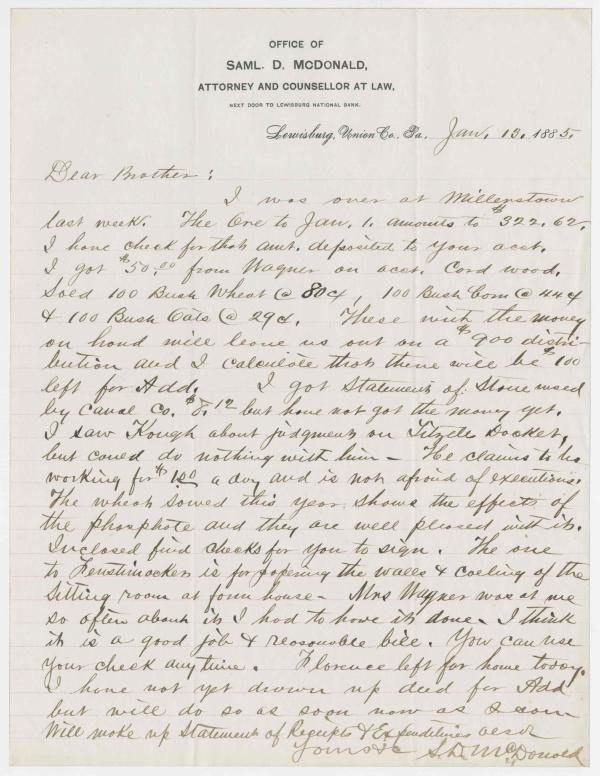 OFFICE OF
SAML. D. McDONALD,
ATTORNEY AND COUNSELLOR AT LAW,
NEXT DOOR TO LEWISBURG NATIONAL BANK.
Lewisburg, Union Co., Pa. Jan. 13. 1885.
Dear Brother:
I was over at Millerstown
last week. The Ore to Jan. 1. amounts to $322.62.
I have check for that amt. deposited to your acct.
I got $50.00 from Wagner on acct. Cord wood.
Sold 100 Bush Wheat @ 80¢, 100 Bush Corn @ 44¢
& 100 Bush Oats @ 29¢. These with the money
on hand will leave us out on a $900 distri-
bution and I calculate that there will be $100
left for Add. I got Statement of Stone used
by Canal Co. $8.12 but have not got the money yet.
I saw Kough about judgment on Titzell Docket,
but could do nothing with him - He claims to be
working for $1.00 a day and is not afraid of executions.
The wheat sowed this year shows the effects of
the phosphate and they are well pleased with it.
Inclosed find checks for you to sign. The one
to Fenstimacker is for papering the walls & ceeling of the
Sitting room at farm house - Mrs Wagner was at me
so often about it I had to have it done - I think
it is a good job & reasonable bill. You can use
your check anytime. Florence left for home today.
I have not yet drawn up deed for Add
but will do so as soon now as I can
Will make up Statement of Receipts & Expenditures also
Yours &c S. D. McDonald